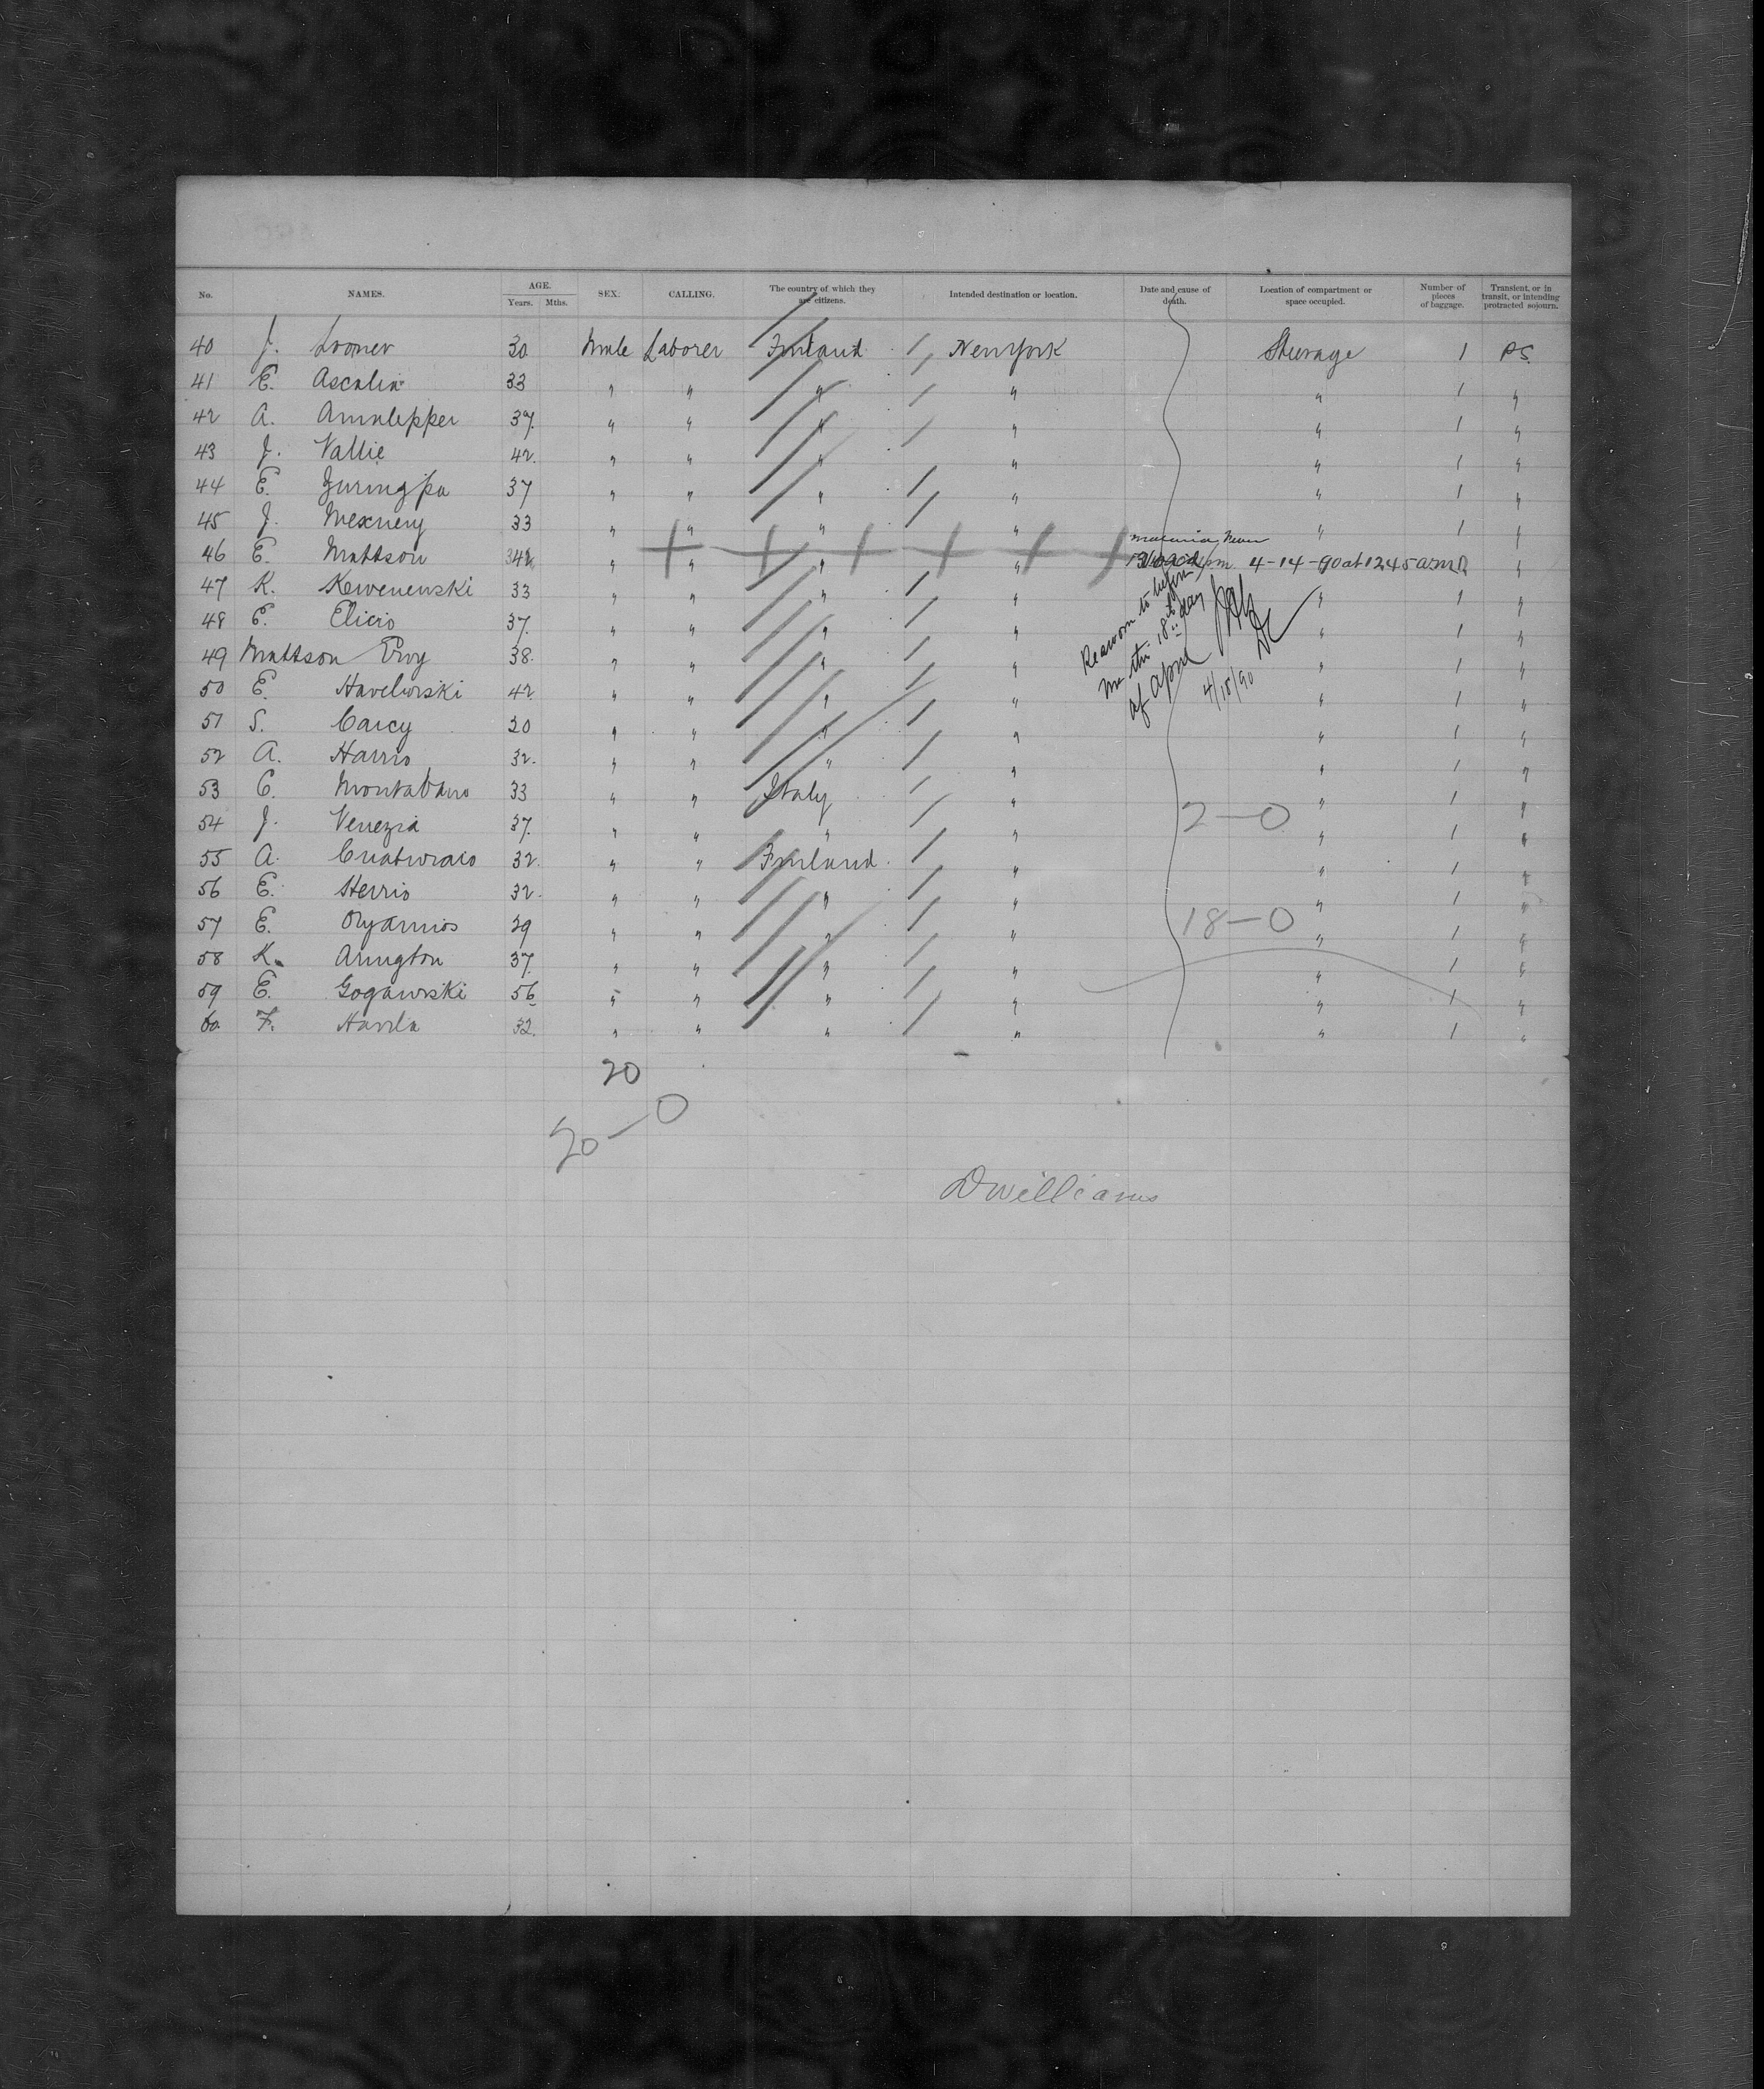 No. NAMES. AGE. Years. Mths. SEX. CALLING. The country of which they are citizens. Intended destination or location. Date and cause of death. Location of compartment or space occupied. Number of pieces of baggage. Transient, or in transit, or intending protracted sojourn.
40 J. 30 Male Laborer Finland New York Steerage 1 P.S.
41 E. Ascalin 33 " " " " " 1 "
42 A. Annalepper 37 " " " " " 1 "
43 J. Vallie 42 " " " " " 1 "
44 E. 37 " " " " " 1 "
45 J. 33 " " " " " 1 "
46 E. Mattson 42 " " " " 4-14-90 at 12.45 a.m. "
47 K. Kewenenski 33 " " " " " 1 "
48 E. Elicio 37 " " " " " 1 "
49 Mattson Ervy 38 " " " " " 1 "
50 E. 42 " " " " " 1 "
51 S. Carcy 20 " " " " " 1 "
52 A. Harris 32 " " " " " 1 "
53 C. Montabano 33 " " Italy " " 1 "
54 J. Venezia 37 " " " " " 1 "
55 A. 32 " " Finland " " 1 "
56 E. Herris 32 " " " " " 1 "
57 E. 29 " " " " " 1 "
58 K. Arington 37 " " " " " 1 "
59 E. Gogawski 56 " " " " " 1 "
60 F. Havila 32 " " " " " 1 "
to before
me this 18th day
of April
4/18/90
2-0
18-0
20
20-0
D Williams